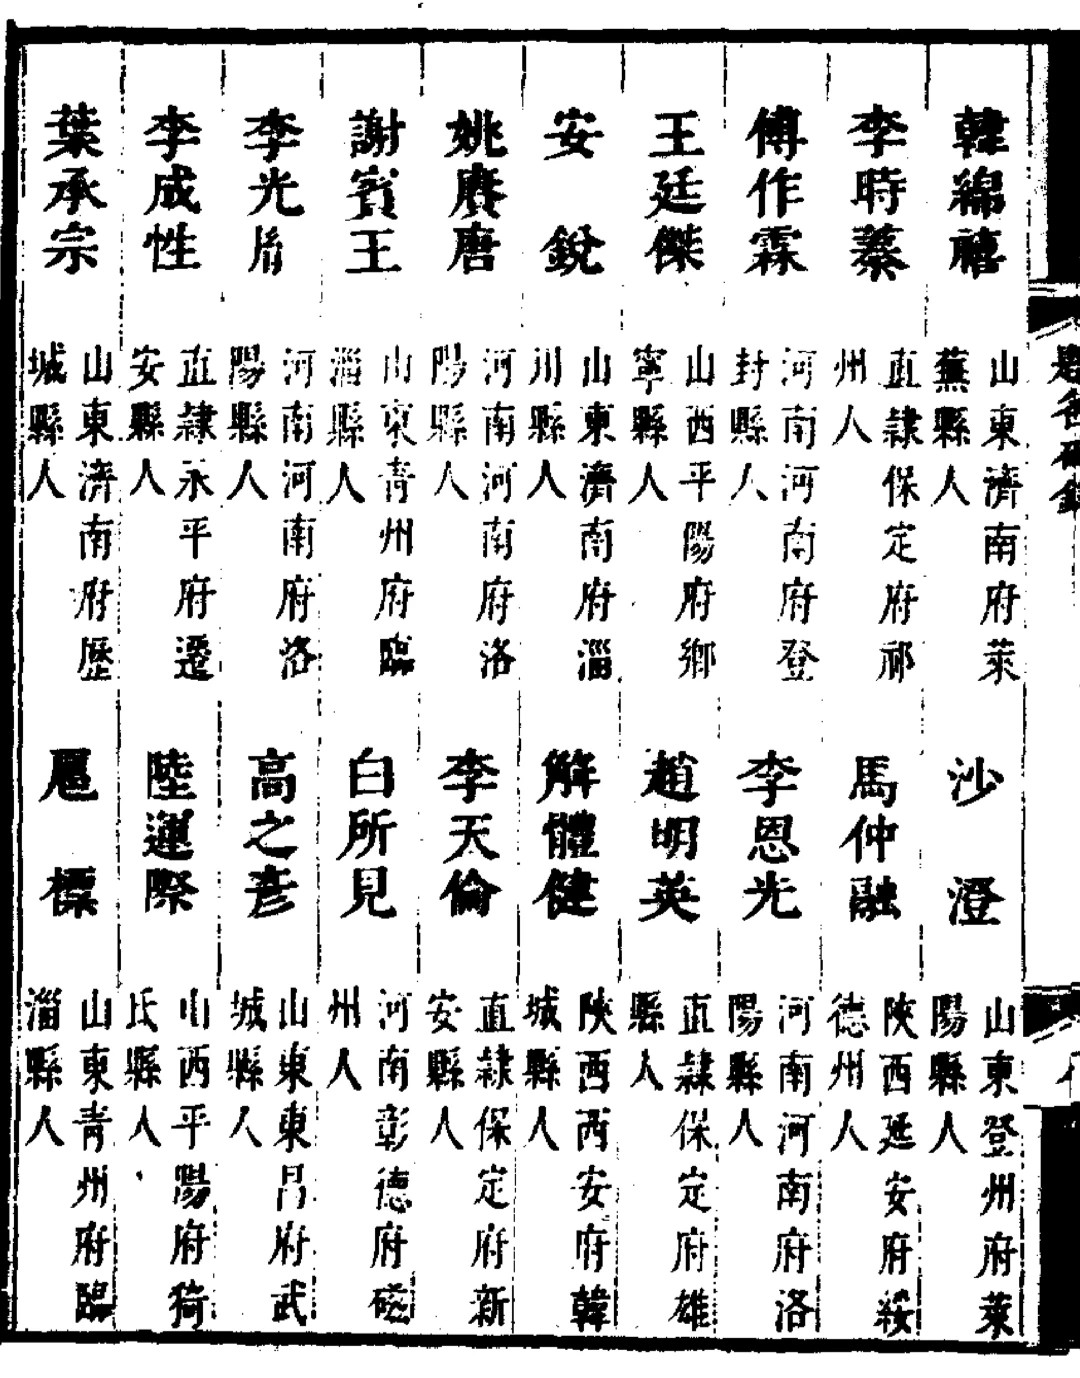 韓綿禧 山東濟南府萊蕪縣人 沙澄 山東登州府萊陽縣人
李時蓁 直隸保定府祁州人 馬仲融 陝西延安府綏德州人
傅作霖 河南河南府登封縣人 李恩光 河南河南府洛陽縣人
王廷傑 山西平陽府鄉寧縣人 趙明英 直隸保定府雄縣人
安銳 山東濟南府淄川縣人 解體健 陝西西安府韓城縣人
姚賡唐 河南河南府洛陽縣人 李天倫 直隸保定府新安縣人
謝賓王 山東青州府臨淄縣人 白所見 河南彰德府磁州人
李光胤 河南河南府洛陽縣人 高之彥 山東東昌府武城縣人
李成性 直隸永平府遷安縣人 陸運際 山西平陽府猗氏縣人
葉承宗 山東濟南府歷城縣人 扈標 山東青州府臨淄縣人